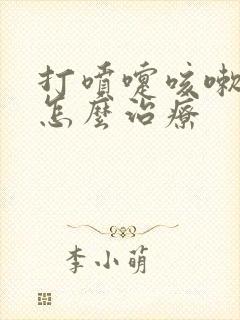 打噴嚏咳嗽
怎麼治療
李小萌